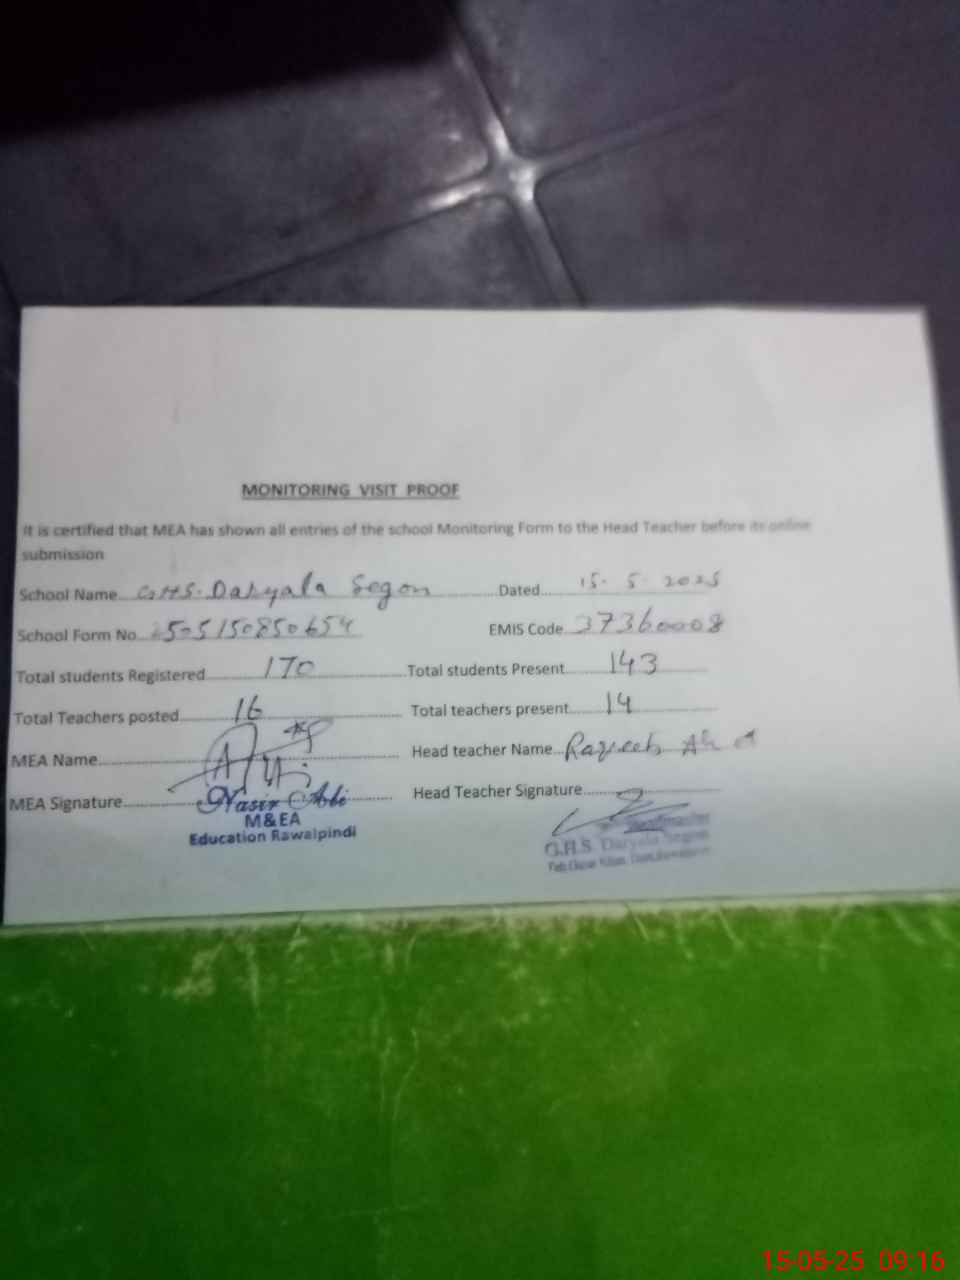 MONITORING VISIT PROOF
It is certified that MEA has shown all entries of the school Monitoring Form to the Head Teacher before its online
submission
School Name G.H.S. Daryala Segon Dated 15. 5. 2025
School Form No 250515085065 EMIS Code 37360008
Total students Registered 170 Total students Present 143
Total Teachers posted 16 Total teachers present 14
MEA Name Head teacher Name
MEA Signature Head Teacher Signature
Nasir Ali
M&EA
Education Rawalpindi
Headmaster
G.H.S. Daryala Segon
15-05-25 09:16